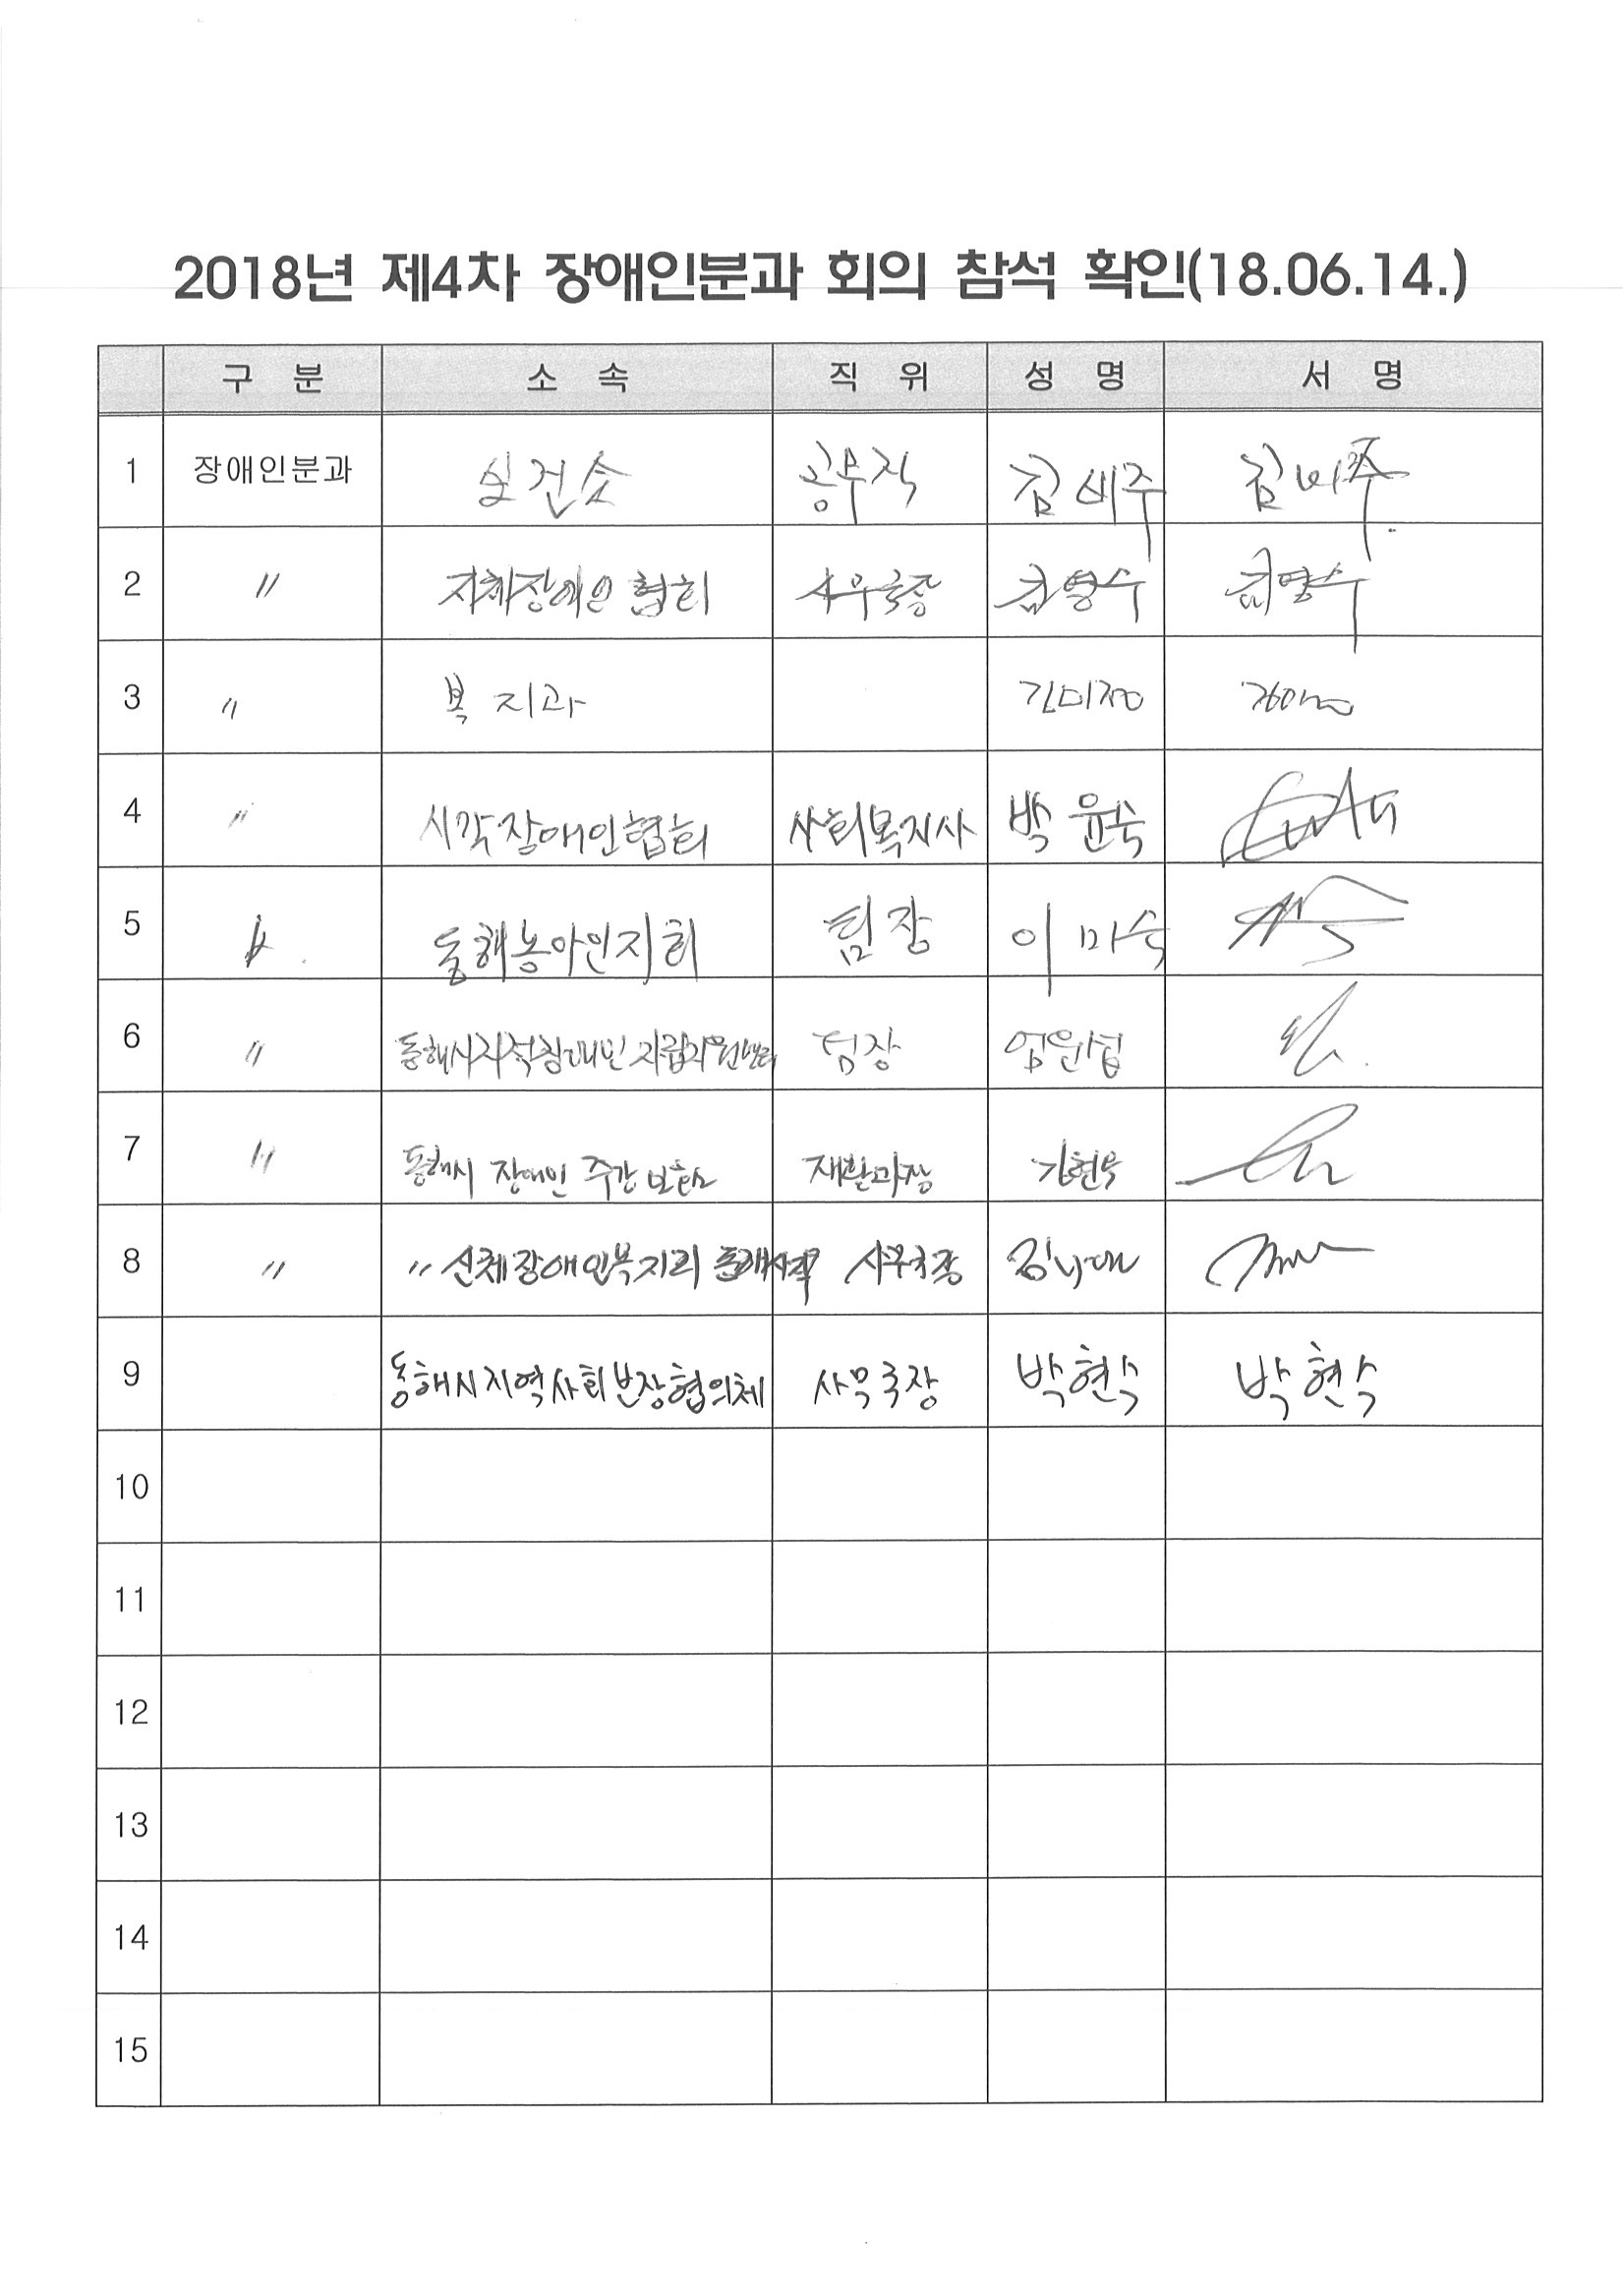 2018년 제4차 장애인분과 회의 참석 확인(18.06.14.)
구 분 소 속 직 위 성 명 서 명
1 장애인분과 보건소 공무직 김비주 김비주
2 〃 지체장애인협회 사무국장 김영수 김영수
3 〃 복지과
4 〃 시각장애인협회 사회복지사 박윤숙
5 〃 동해농아인지회 팀장 이미숙
6 〃 동해시지적장애인 자립지원센터 팀장 엄윤섭
7 〃 동해시 장애인 주간보호소 재활과장 김현욱
8 〃 〃 신체장애인복지회 동해시지부 사무국장
9 동해시지역사회보장협의체 사무국장 박현수 박현수
10
11
12
13
14
15